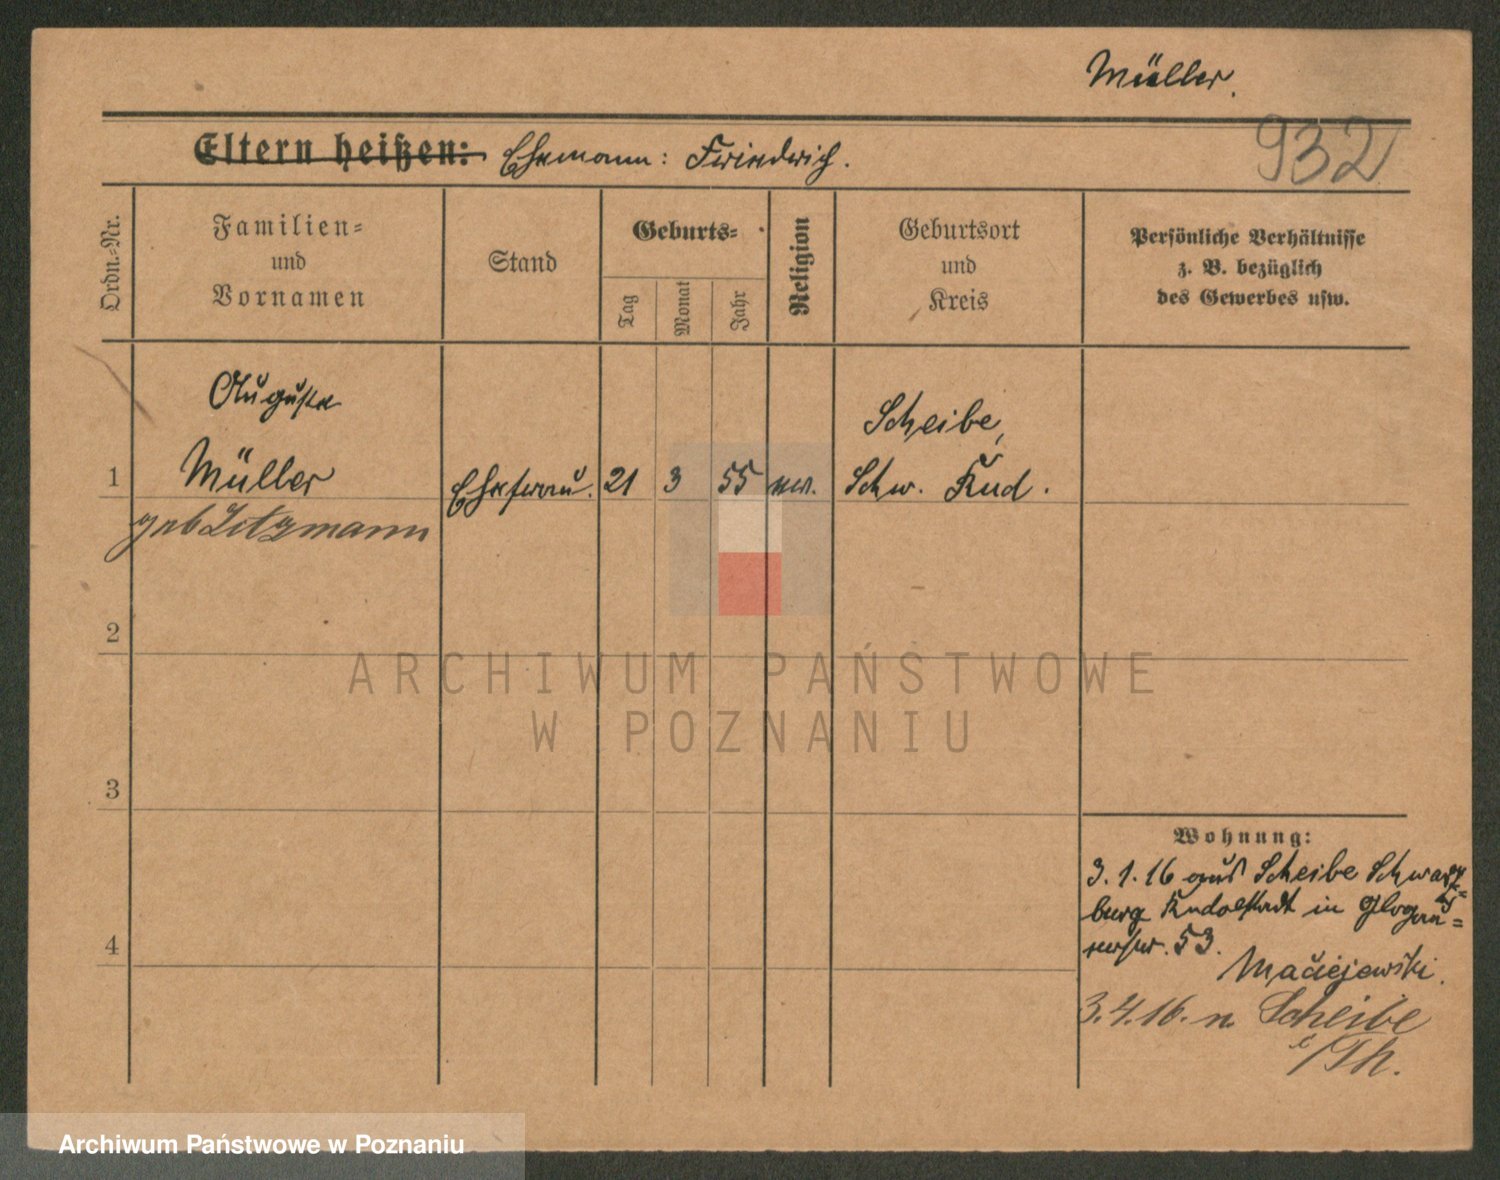 Müller.
932
Eltern heißen: Ehemann: Friedrich.
Ordn.-Nr.
Familien-
und
Vornamen
Stand
Geburts-
Tag
Monat
Jahr
Religion
Geburtsort
und
Kreis
Persönliche Verhältnisse
z. B. bezüglich
des Gewerbes usw.
Auguste
Scheibe,
1 Müller Ehefrau. 21 3 55 ev. Schw. Rud.
geb Litzmann
2
ARCHIWUM PAŃSTWOWE
W POZNANIU
3
Wohnung:
3.1.16 aus Scheibe Schwarz-
burg Rudolstadt in Glogau-
erstr. 53.
4
Maciejewski.
3.4.16. n. Scheibe
i/Th.
Archiwum Państwowe w Poznaniu